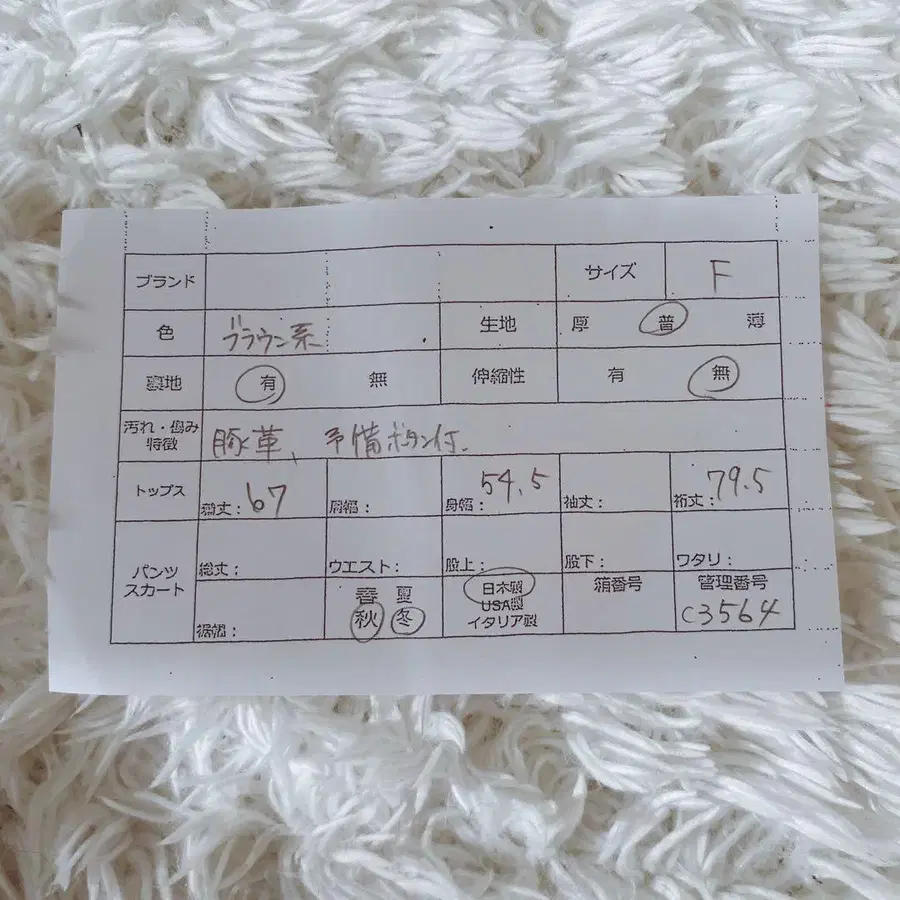 ブランド サイズ F
色 ブラウン系 生地 厚 普 薄
裏地 有 無 伸縮性 有 無
汚れ・傷み
特徴 豚革、予備ボタン付.
トップス 着丈: 67 肩幅: 身幅: 54.5 袖丈: 裄丈: 79.5
パンツ
スカート
総丈: ウエスト: 股上: 股下: ワタリ:
裾幅:
春 夏
秋 冬
日本製
USA製
イタリア製
箱番号
管理番号
C3564